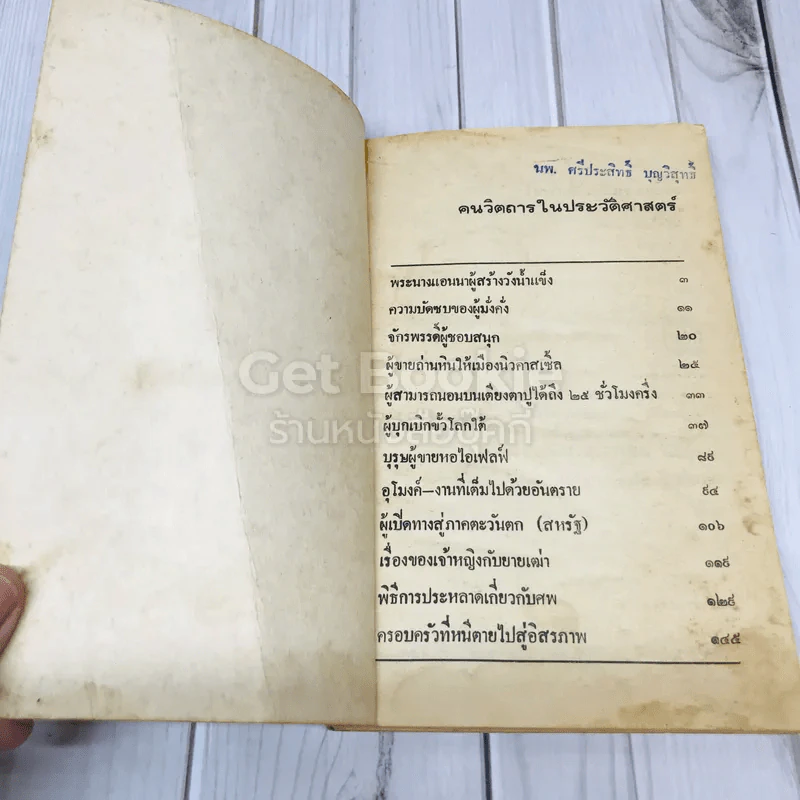 นพ. ศรีประสิทธิ์ บุญวิสุทธิ์
คนวิตถารในประวัติศาสตร์
พระนางแอนนาผู้สร้างวังน้ำแข็ง ๓
ความบัดซบของผู้มั่งคั่ง ๑๑
จักรพรรดิ์ผู้ชอบสนุก ๒๐
ผู้ขายถ่านหินให้เมืองนิวคาสเซิ้ล ๒๕
ผู้สามารถนอนบนเตียงตาปูได้ถึง ๒๕ ชั่วโมงครึ่ง ๓๓
ผู้บุกเบิกขั้วโลกใต้ ๓๗
บุรุษผู้ขายหอไอเฟลฟ์ ๘๙
อุโมงค์—งานที่เต็มไปด้วยอันตราย ๙๔
ผู้เปิดทางสู่ภาคตะวันตก (สหรัฐ) ๑๐๖
เรื่องของเจ้าหญิงกับยายเฒ่า ๑๑๙
พิธีการประหลาดเกี่ยวกับศพ ๑๒๙
ครอบครัวที่หนีตายไปสู่อิสรภาพ ๑๔๕
Get Bookie
ร้านหนังสือบุ๊คกี้